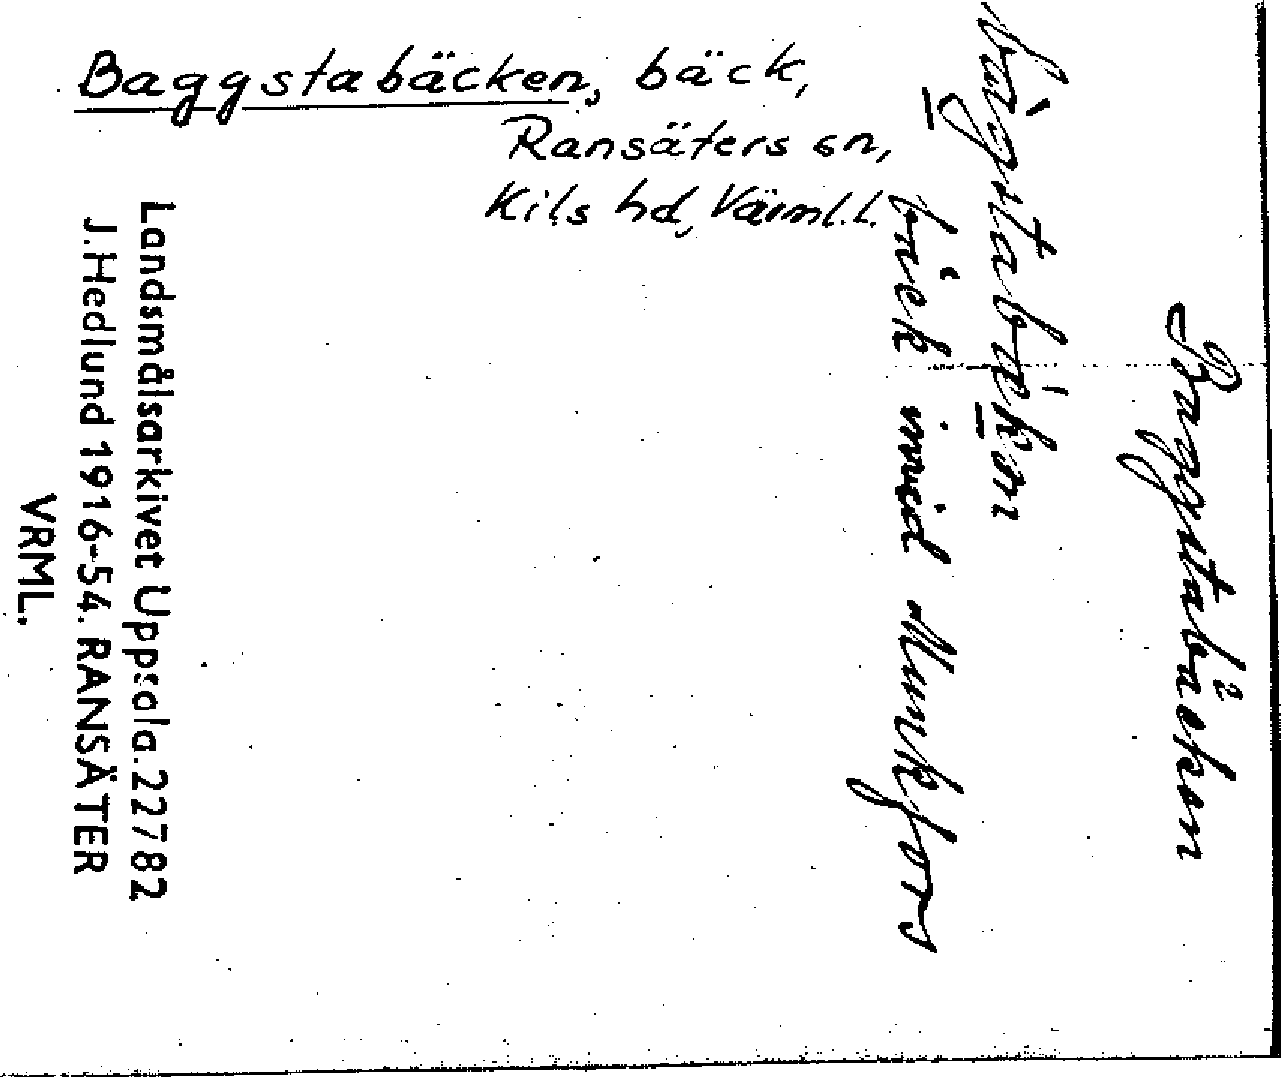 Baggstabäcken, bäck,
Ransäters sn,
Kils hd, Värml. l.
Baggstabäcken
bäck invid Munkfors
Landsmålsarkivet Uppsala. 22782
J. Hedlund 1916-54. RANSÄTER
VRML.